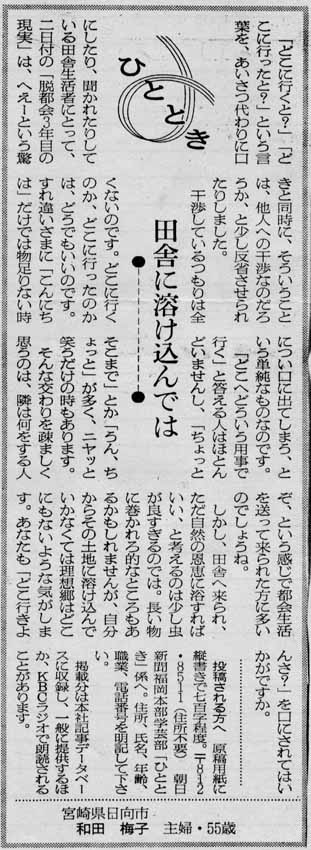 ひととき
田舎に溶け込んでは
「どこに行くと?」「ど
こに行ったと?」という言
葉を、あいさつ代わりに口
にしたり、聞かれたりして
いる田舎生活者にとって、
二日付の「脱都会3年目の
現実」は、へえーという驚
きと同時に、そういうこと
は、他人への干渉なのだろ
うか、と少し反省させられ
たりしました。
干渉しているつもりは全
くないのです。どこに行く
のか、どこに行ったのか
は、どうでもいいのです。
すれ違いざまに「こんにち
は」だけでは物足りない時
につい口に出てしまう、と
いう単純なものなのです。
「どこへどういう用事で
行く」と答える人はほとん
どいませんし、「ちょっと
そこまで」とか「うん、ち
ょっと」が多く、ニヤッと
笑うだけの時もあります。
そんな交わりを疎ましく
思うのは、隣は何をする人
ぞ、という感じで都会生活
を送って来られた方に多い
のでしょうね。
しかし、田舎へ来られ、
ただ自然の恩恵に浴すれば
いい、と考えるのは少し虫
が良すぎるのでは。長い物
に巻かれろ的なところもあ
るかもしれませんが、自分
からその土地に溶け込んで
いかなくては理想郷はどこ
にもないような気がしま
す。あなたも「どこ行きよ
んさ?」を口にされてはい
かがですか。
投稿される方へ 原稿用紙に
縦書きで七百字程度。〒812
・8511(住所不要) 朝日
新聞福岡本部学芸部「ひとと
き」係へ。住所、氏名、年齢、
職業、電話番号を明記して下さ
い。
掲載分は本社記事データベー
スに収録し、一般に提供するほ
か、KBCラジオで朗読される
ことがあります。
宮崎県日向市
和田 梅子 主婦・55歳